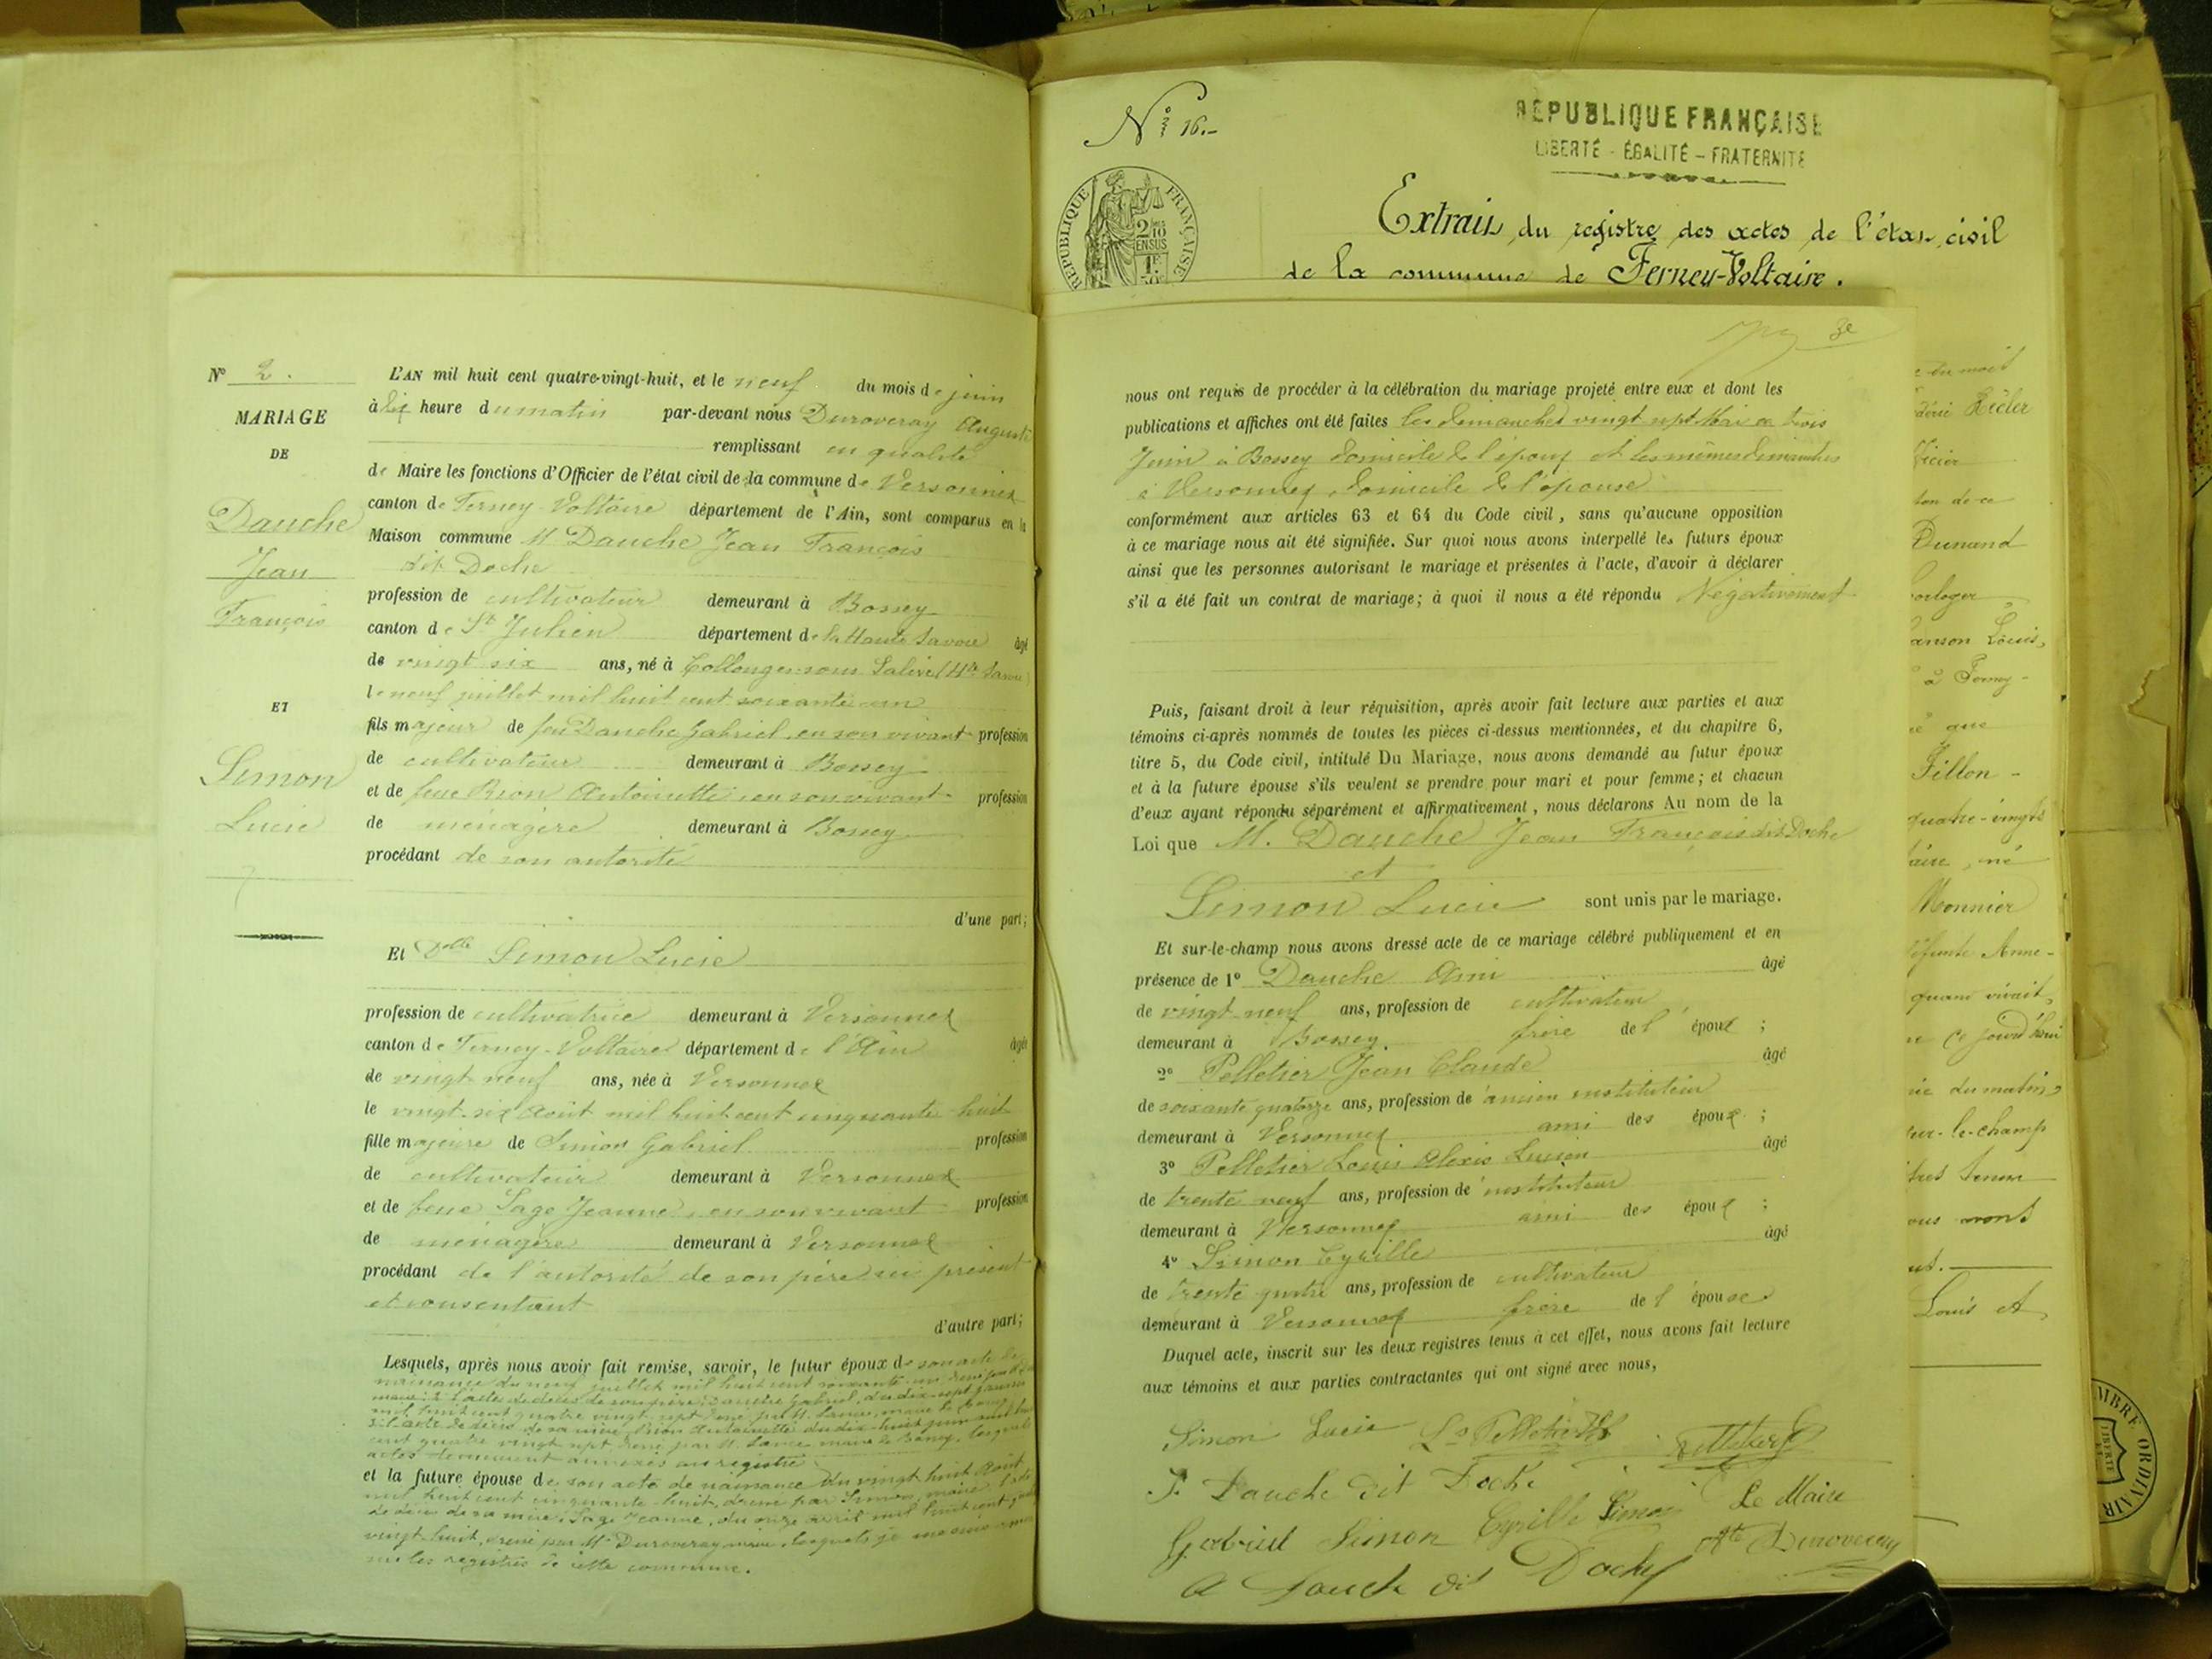 N° 2.
MARIAGE
DE
Dauche
Jean
François
ET
Simon
Lucie
L'AN mil huit cent quatre-vingt-huit, et le neuf du mois de juin
à dix heure du matin par-devant nous Duroveray Auguste
remplissant en qualité
de Maire les fonctions d'Officier de l'état civil de la commune de Versonnex
canton de Ferney-Voltaire département de l'Ain, sont comparus en la
Maison commune M Dauche Jean François
dit Doche
profession de cultivateur demeurant à Bossey
canton de St Julien département de la Haute Savoie âgé
de vingt six ans, né à Collonges-sous Salève (Hte Savoie)
le neuf juillet mil huit cent soixante un
fils majeur de feu Dauche Gabriel, en son vivant profession
de cultivateur demeurant à Bossey
et de feue Rion Antoinette, en son vivant profession
de ménagère demeurant à Bossey
procédant de son autorité
d'une part;
Et Dlle Simon Lucie
profession de cultivatrice demeurant à Versonnex
canton de Ferney-Voltaire département de l'Ain âgée
de vingt neuf ans, née à Versonnex
le vingt-six Août mil huit cent cinquante huit
fille majeure de Simon Gabriel profession
de cultivateur demeurant à Versonnex
et de feue Sage Jeanne, en son vivant profession
de ménagère demeurant à Versonnex
procédant de l'autorité de son père ici présent
et consentant
d'autre part;
Lesquels, après nous avoir fait remise, savoir, le futur époux de son acte de
naissance du neuf juillet mil huit cent soixante-un,
maire; l'acte de décès de son père, Dauche Gabriel, du dix-sept janvier
mil huit cent quatre vingt sept
actes demeurent annexés au registre
et la future épouse de son acte de naissance du vingt huit Août
mil huit cent cinquante-huit, dressé par Simon, maire
de décès de sa mère, Sage Jeanne, du onze avril mil huit cent
vingt huit, dressé par Mr Duroveray maire, lesquels
sur les registres de cette commune.
N° 16.-
RÉPUBLIQUE FRANÇAISE
LIBERTÉ - ÉGALITÉ - FRATERNITÉ
RÉPUBLIQUE FRANÇAISE
2/10
EN SUS
1F
Extrait du registre des actes de l'état civil
de la commune de Ferney-Voltaire.
3e
nous ont requis de procéder à la célébration du mariage projeté entre eux et dont les
publications et affiches ont été faites les dimanches vingt-sept Mai et trois
Juin à Bossey domicile de l'époux et les mêmes dimanches
à Versonnex, domicile de l'épouse
conformément aux articles 63 et 64 du Code civil, sans qu'aucune opposition
à ce mariage nous ait été signifiée. Sur quoi nous avons interpellé les futurs époux
ainsi que les personnes autorisant le mariage et présentes à l'acte, d'avoir à déclarer
s'il a été fait un contrat de mariage; à quoi il nous a été répondu Négativement
Puis, faisant droit à leur réquisition, après avoir fait lecture aux parties et aux
témoins ci-après nommés de toutes les pièces ci-dessus mentionnées, et du chapitre 6,
titre 5, du Code civil, intitulé Du Mariage, nous avons demandé au futur époux
et à la future épouse s'ils veulent se prendre pour mari et pour femme; et chacun
d'eux ayant répondu séparément et affirmativement, nous déclarons Au nom de la
Loi que M. Dauche Jean François dit Doche
et
Simon Lucie sont unis par le mariage.
Et sur-le-champ nous avons dressé acte de ce mariage célébré publiquement et en
présence de 1° Dauche Ami âgé
de vingt-neuf ans, profession de cultivateur
demeurant à Bossey. frère de l'époux ;
2° Pelletier Jean Claude âgé
de soixante quatorze ans, profession de ancien instituteur
demeurant à Versonnex ami des époux ;
3° Pelletier Louis Alexis Lucien âgé
de trente neuf ans, profession de instituteur
demeurant à Versonnex ami des époux ;
4° Simon Cyrille âgé
de trente quatre ans, profession de cultivateur
demeurant à Versonnex frère de l'épouse
Duquel acte, inscrit sur les deux registres tenus à cet effet, nous avons fait lecture
aux témoins et aux parties contractantes qui ont signé avec nous,
Simon Lucie Ls Pelletier Pelletier
F. Dauche dit Doche
Gabriel Simon Cyrille Simon Le Maire
A Dauche dit Doche Ate Duroveray
du mois
ficier
ton de ce
Dunand
horloger
anson Louis,
à Ferney-
é que
Fillon -
quatre-vingts
aire, né
Monnier
défunte Anne-
quand vivait,
ce jourd'hui
du matin,
sur-le-champ
ous avons
Louis et
TIMBRE ORDINAIRE